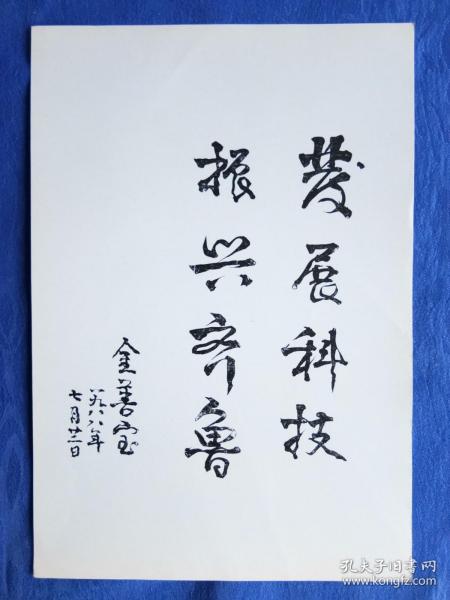 发展科技
振兴齐鲁
金善宝
一九八八年
七月廿二日
孔夫子旧书网
www.kongfz.com